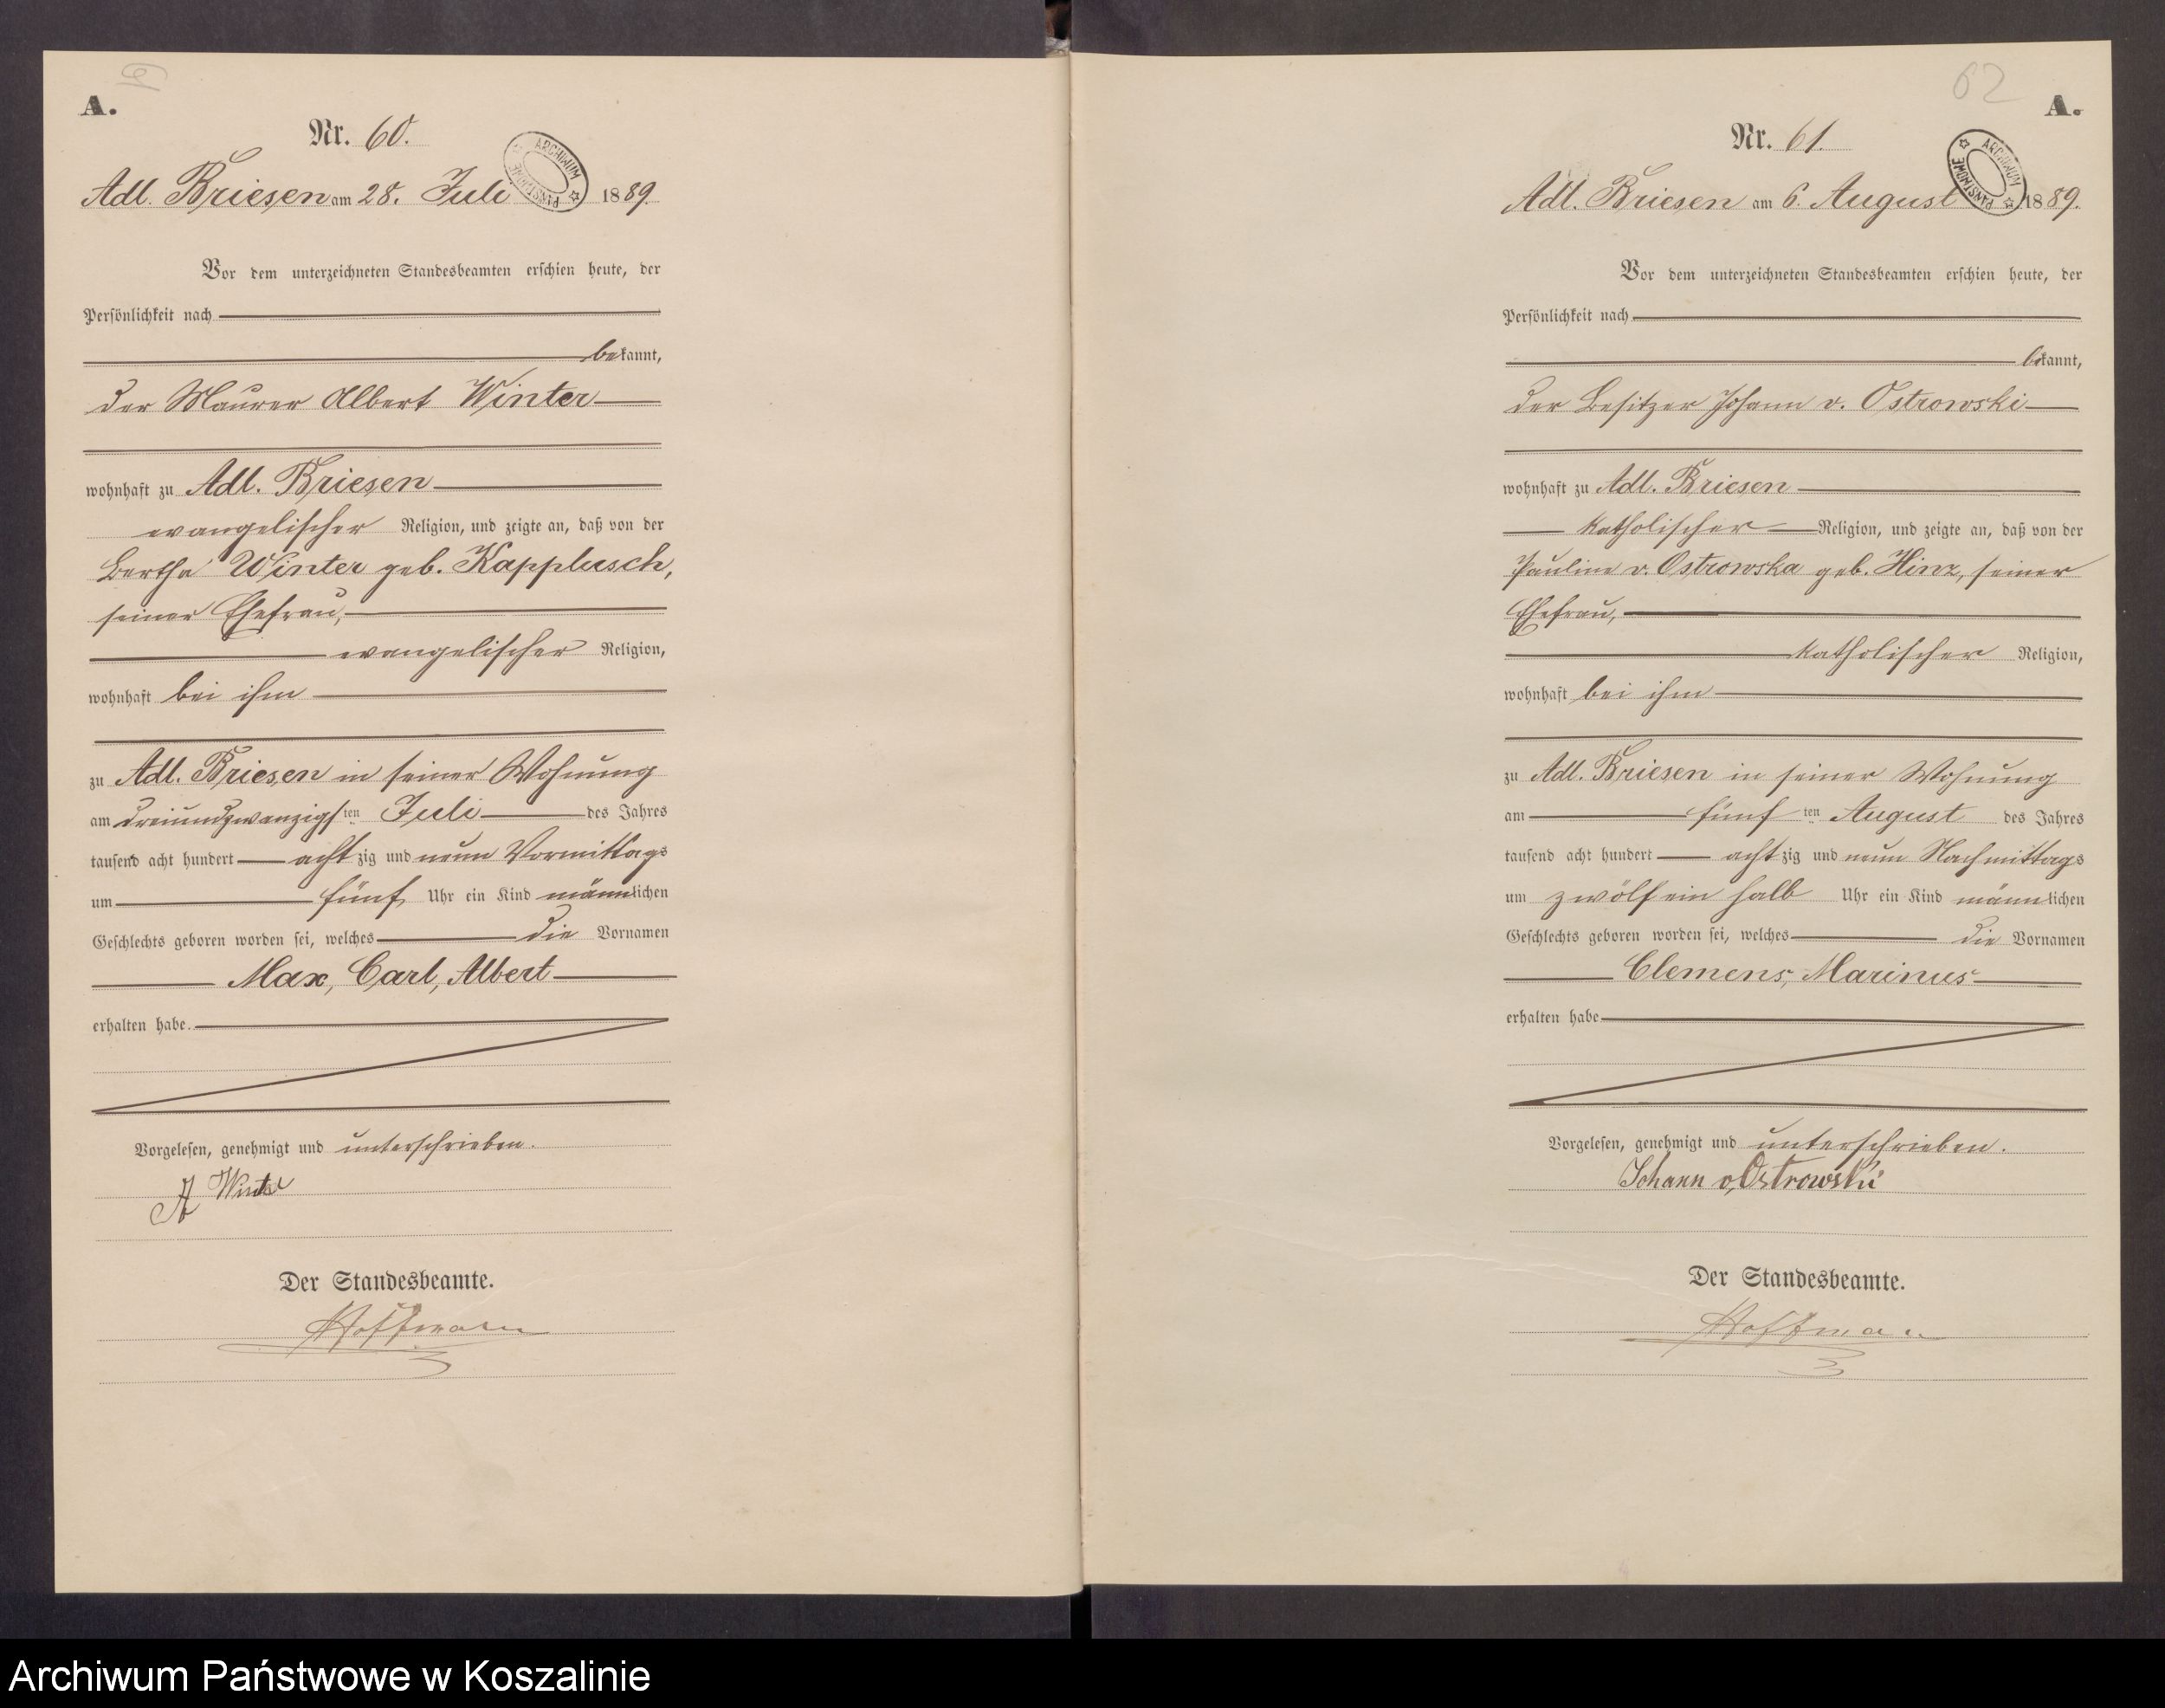 61
A.
Nr. 60.
ARCHIWUM PAŃSTWOWE
Adl. Briesen am 28. Juli 1889.
Vor dem unterzeichneten Standesbeamten erschien heute, der
Persönlichkeit nach
bekannt,
der Maurer Albert Winter
wohnhaft zu Adl. Briesen
evangelischer Religion, und zeigte an, daß von der
Bertha Winter geb. Kapplusch,
seiner Ehefrau,
evangelischer Religion,
wohnhaft bei ihm
zu Adl. Briesen in seiner Wohnung
am dreiundzwanzigsten Juli des Jahres
tausend acht hundert achtzig und neun Vormittags
um fünf Uhr ein Kind männlichen
Geschlechts geboren worden sei, welches die Vornamen
Max, Carl, Albert
erhalten habe.
Vorgelesen, genehmigt und unterschrieben.
A Winter
Der Standesbeamte.
Hoffmann
62
A.
Nr. 61.
ARCHIWUM PAŃSTWOWE
Adl. Briesen am 6. August 1889.
Vor dem unterzeichneten Standesbeamten erschien heute, der
Persönlichkeit nach
bekannt,
der Besitzer Johann v. Ostrowski
wohnhaft zu Adl. Briesen
katholischer Religion, und zeigte an, daß von der
Pauline v. Ostrowska geb. Hinz, seiner
Ehefrau,
katholischer Religion,
wohnhaft bei ihm
zu Adl. Briesen in seiner Wohnung
am fünften August des Jahres
tausend acht hundert achtzig und neun Nachmittags
um zwölf ein halb Uhr ein Kind männlichen
Geschlechts geboren worden sei, welches die Vornamen
Clemens, Marinus
erhalten habe
Vorgelesen, genehmigt und unterschrieben.
Johann v. Ostrowski
Der Standesbeamte.
Hoffmann
Archiwum Państwowe w Koszalinie